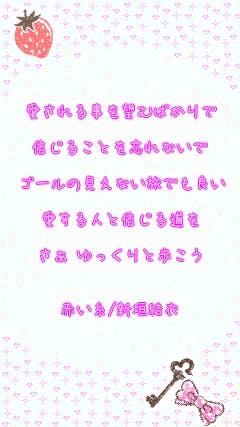 愛される事を望むばかりで
信じることを忘れないで
ゴールの見えない旅でも良い
愛する人と信じる道を
さぁ ゆっくりと歩こう
赤い糸/新垣結衣